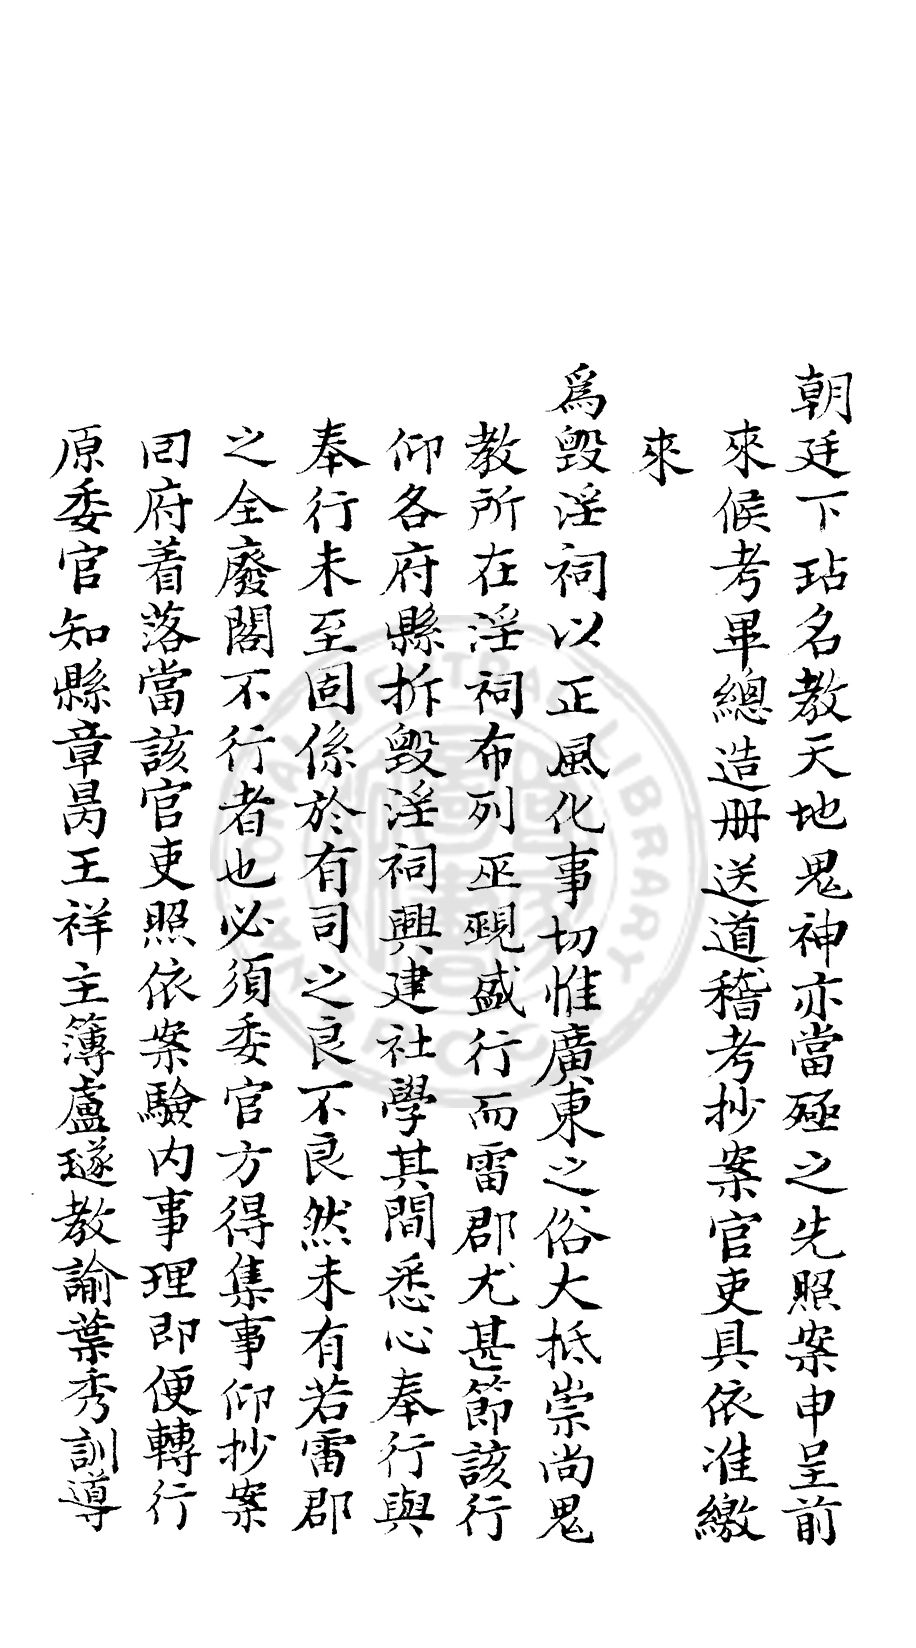 朝廷下玷名教天地鬼神亦當殛之先照案申呈前
來候考畢總造冊送道稽考抄案官吏具依准繳
來
爲毀淫祠以正風化事切惟廣東之俗大抵崇尚鬼
教所在淫祠布列巫覡盛行而雷郡尤甚節該行
仰各府縣拆毀淫祠興建社學其間悉心奉行與
奉行未至固係於有司之良不良然未有若雷郡
之全廢閣不行者也必須委官方得集事仰抄案
囘府着落當該官吏照依案驗内事理即便轉行
原委官知縣章昺王祥主簿盧璲教諭葉秀訓導
NATIONAL CENTRAL LIBRARY